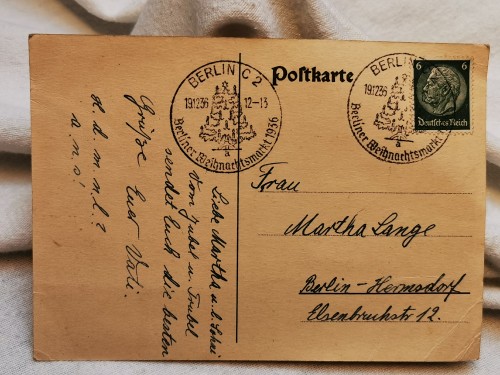 Postkarte
BERLIN C 2
19.12.36 12-13
Berliner Weihnachtsmarkt 1936
a
BERLIN C 2
19.12.36
Berliner Weihnachtsmarkt 1936
a
6 6
Deutsches Reich
Frau
Martha Lange
Berlin-Hermsdorf
Elsenbruchstr 12.
Liebe Martha u. l.
Vom Jubel u. Trubel
sendet Euch die besten
Grüße Euer Vati.
d. m. n. l.?
a. n. s!